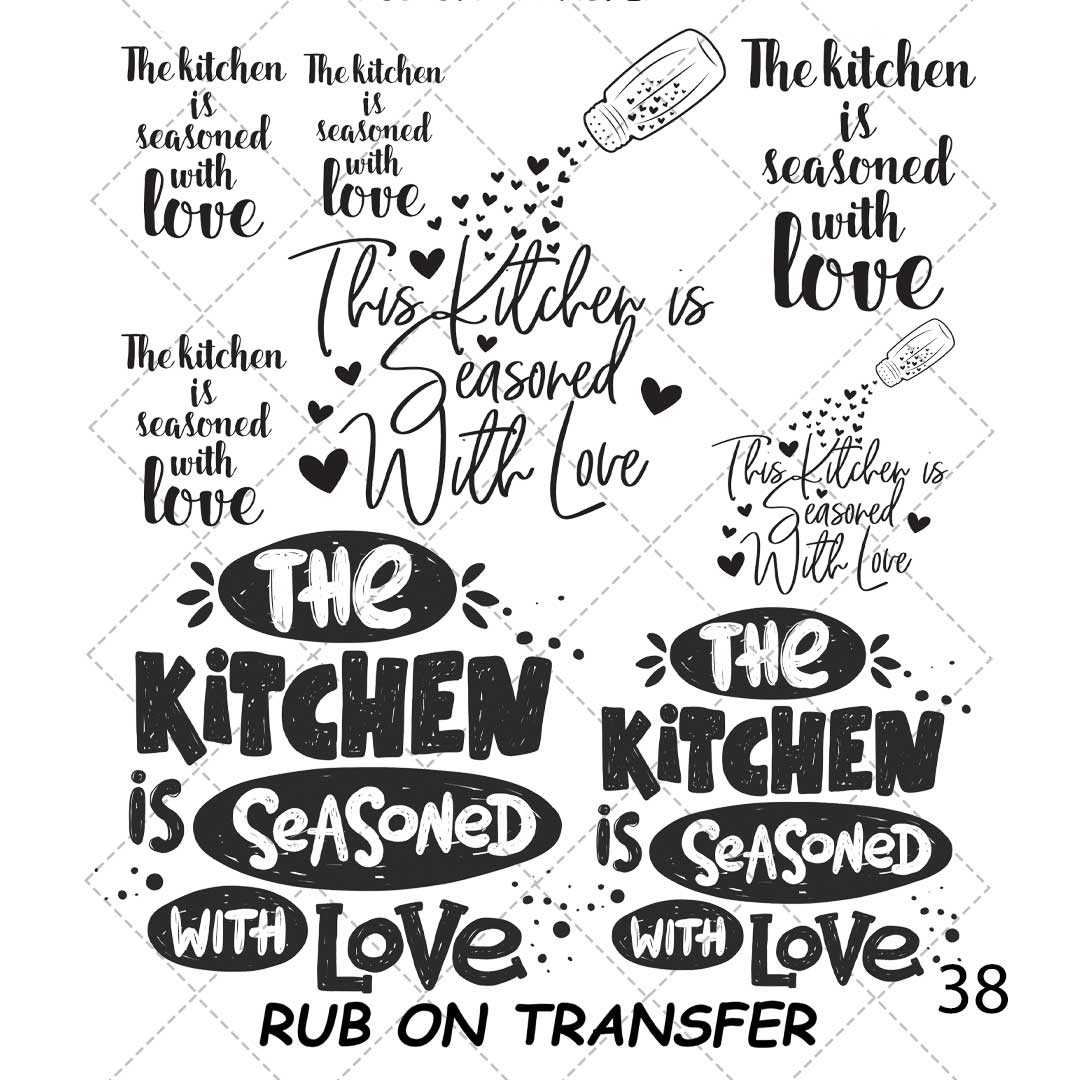 The kitchen
is
seasoned
with
love
The kitchen
is
seasoned
with
love
The kitchen
is
seasoned
with
love
This Kitchen is
Seasoned
With Love
The kitchen
is
seasoned
with
love
This Kitchen is
Seasoned
With Love
THe
KiTCHEN
iS
SeASoNeD
WITH LoVe
THe
KiTCHEN
iS
SeASoNeD
WITH LoVe
38
RUB ON TRANSFER